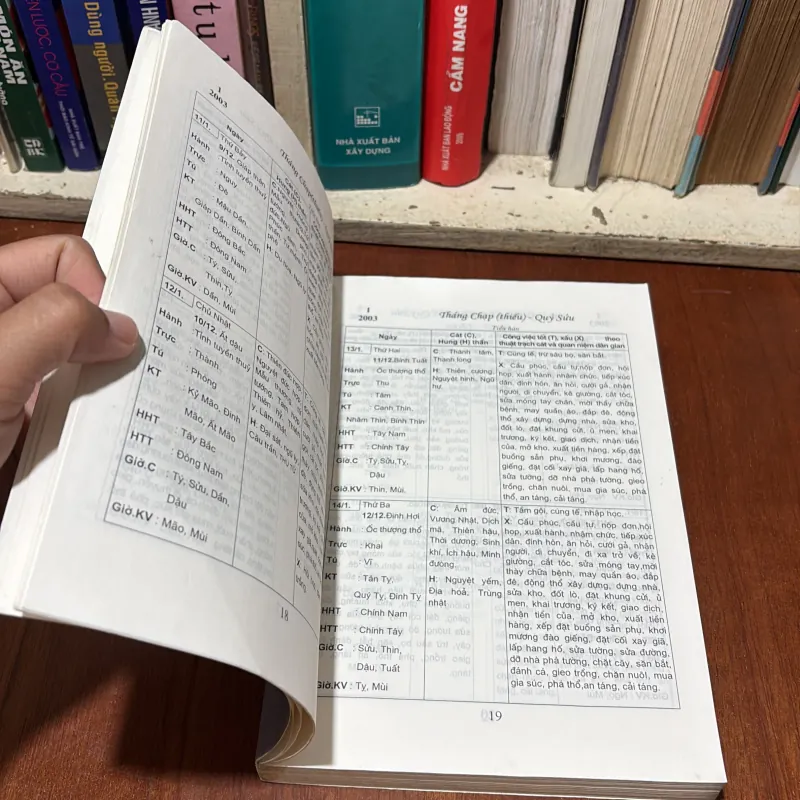 MÓN ĂN
NAM
LƯỢC, CƠ CẤU
Dùng người, Quản
NHÀ XUẤT BẢN
XÂY DỰNG
CẨM NANG
NHÀ XUẤT BẢN LAO ĐỘNG
1
2003
Tháng Chạp
Ngày
11/1. Thứ Bảy
9/12. Giáp Thân
Hành : Tỉnh tuyền thuỷ
Trực : Nguy
Tú : Đê
KT : Mậu Dần
Giáp Dần, Bính Dần
HHT : Đông Bắc
HTT : Đông Nam
Giờ.C : Tý, Sửu,
Thìn Tỵ
Giờ.KV : Dần, Mùi
12/1. Chủ Nhật
10/12. Ất dậu
Hành : Tỉnh tuyền thuỷ
Trực : Thành
Tú : Phòng
KT : Kỷ Mão, Đinh
Mão, Ất Mão
HHT : Tây Bắc
HTT : Đông Nam
Giờ.C : Tý, Sửu, Dần,
Dậu
Giờ.KV : Mão, Mùi
18
1
2003
Tháng Chạp (thiếu) - Quý Sửu
Tiểu hàn
Ngày
Cát (C),
Hung (H) thần
Công việc tốt (T), xấu (X) theo
thuật trạch cát và quan niệm dân gian
13/1. Thứ Hai
11/12.Bính Tuất
Hành : Ốc thượng thổ
Trực : Thu
Tú : Tâm
KT : Canh Thìn,
Nhâm Thìn, Bính Thìn
HHT : Tây Nam
HTT : Chính Tây
Giờ.C : Tý,Sửu,Tỵ,
Dậu
Giờ.KV : Thìn, Mùi,
C: Thánh tâm,
Thanh long
H: Thiên cương,
Nguyệt hình, Ngũ
hư,
T: Cúng tế, trừ sâu bọ, săn bắt.
X: Cầu phúc, cầu tự,nộp đơn, hội
họp, xuất hành, nhậm chức, tiếp xúc
dân, đính hôn, ăn hỏi, cưới gả, nhận
người, di chuyển, kê giường, cắt tóc,
sửa móng tay chân, mời thầy chữa
bệnh, may quần áo, đắp đê, động
thổ xây dựng, dựng nhà, sửa kho,
đốt lò, đặt khung cửi, ủ men, khai
trương, ký kết, giao dịch, nhận tiền
của, mở kho, xuất tiền hàng, xếp đặt
buồng sản phụ, khơi mương, đào
giếng, đặt cối xay giã, lấp hang hố,
sửa tường, dỡ nhà phá tường, gieo
trồng, chăn nuôi, mua gia súc, phá
thổ,an táng, cải táng.
14/1. Thứ Ba
12/12.Đinh Hợi
Hành : Ốc thượng thổ
Trực : Khai
Tú : Vĩ
KT : Tân Tỵ,
Quý Tỵ, Đinh Tỵ
HHT : Chính Nam
HTT : Chính Tây
Giờ.C : Sửu, Thìn,
Dậu, Tuất
Giờ.KV : Tỵ, Mùi
C: Âm đức,
Vương Nhật, Dịch
mã, Thiên hậu,
Thời dương, Sinh
khí, Ích hậu, Minh
đường
H: Nguyệt yếm,
Địa hoả, Trùng
nhật
T: Tắm gội, cúng tế, nhập học.
X: Cầu phúc, cầu tự, nộp đơn,hội
họp, xuất hành, nhậm chức, tiếp xúc
dân, đính hôn, ăn hỏi, cưới gả, nhận
người, di chuyển, đi xa trở về, kê
giường, cắt tóc, sửa móng tay,mời
thầy chữa bệnh, may quần áo, đắp
đê, động thổ xây dựng, dựng nhà,
sửa kho, đốt lò, đặt khung cửi, ủ
men, khai trương, ký kết, giao dịch,
nhận tiền của, mở kho, xuất tiền
hàng, xếp đặt buồng sản phụ, khơi
mương đào giếng, đặt cối xay giã,
lấp hang hố, sửa tường, sửa đường,
dỡ nhà phá tường, chặt cây, săn bắt,
đánh cá, gieo trồng, chăn nuôi, mua
gia súc, phá thổ,an táng, cải táng.
19